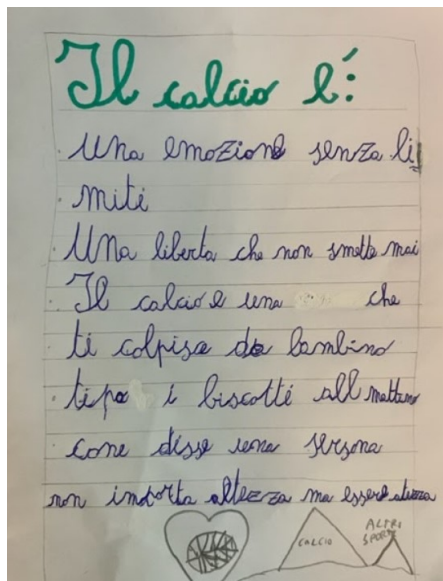 Il calcio é:
Una emozione senza li
miti
Una liberta che non smette mai
Il calcio e una che
ti colpisce da bambino
tipo i biscotti all mattino
come disse una persona
non importa altezza ma essere altezza
CALCIO
ALTRI
SPORT